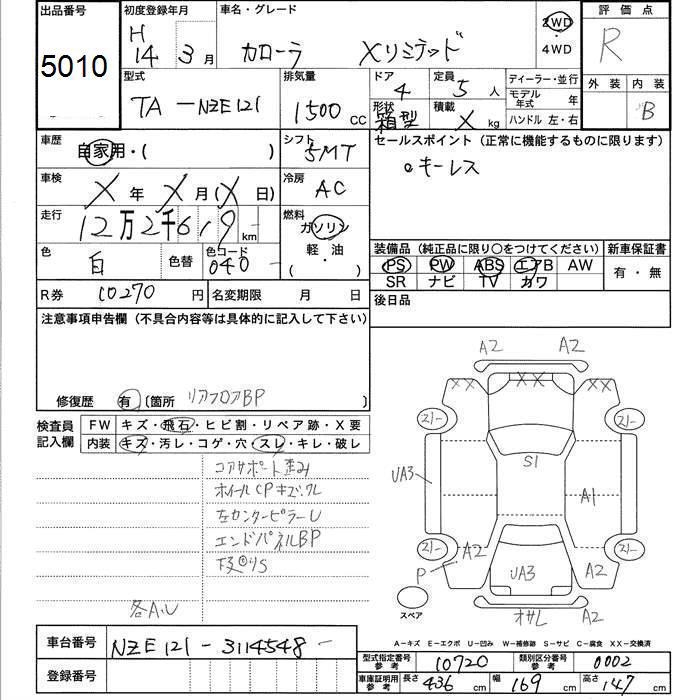 出品番号
5010
初度登録年月
H
14 3月
車名・グレード
カローラ Xリミテッド
2WD
・
4WD
評価点
R
外装 内装
B
型式
TA-NZE121
排気量
1500 CC
ドア
4
定員
5人
ディーラー・並行
モデル年式 年
形状
箱型
積載
X kg
ハンドル 左・右
車歴
自家用・( )
シフト
5MT
セールスポイント(正常に機能するものに限ります)
キーレス
車検
X年 X月(X日)
冷房
AC
走行
12万2千6,9 km
燃料
ガソリン
軽・油
( )
色
白
色替
色コード
040-
装備品(純正品に限り○をつけてください)
新車保証書
PS PW ABS エアB AW
SR ナビ TV カワ
有・無
R券
10270円
名変期限 月 日
後日品
注意事項申告欄(不具合内容等は具体的に記入して下さい)
修復歴 有 〔箇所 リアフロアBP 〕
検査員
記入欄
FW キズ・飛石・ヒビ割・リペア跡・X要
内装 キズ・汚レ・コゲ・穴・スレ・キレ・破レ
コアサポート歪み
ホイールCPキズ、クレ
左センターピラーU
エンドパネルBP
下廻りS
各A.U
A2 A2
XX XX
21- 21-
S1
UA3
A1
21- 21-
A2
P
UA3
A2
オサレ
A2
スペア
A-キズ E-エクボ U-凹み W-補修跡 S-サビ C-腐食 XX-交換済
車台番号
NZE121-3114548-
登録番号
型式指定番号
参考
10720
類別区分番号
参考
0002
車庫証明用
参考
長さ 436 cm
幅 169 cm
高さ 147 cm